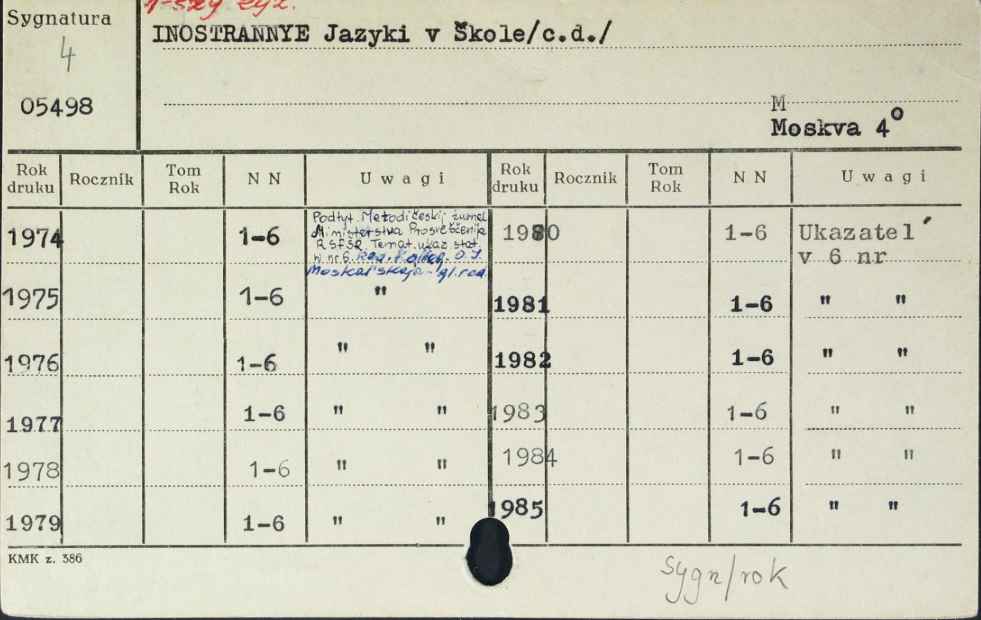 1-szy egz.
Sygnatura
4
05498
INOSTRANNYE Jazyki v Škole/c.d./
M
Moskva 4°
Rok druku Rocznik Tom Rok NN Uwagi Rok druku Rocznik Tom Rok NN Uwagi
1974 1-6 Podtyt. Metodičeskij žurnal
Ministerstva Prosveščenija
RSFSR Temat. ukaz stat.
w nr 6.
gl. red
1980 1-6 Ukazatel´
v 6 nr
1975 1-6 " 1981 1-6 " "
1976 1-6 " " 1982 1-6 " "
1977 1-6 " " 1983 1-6 " "
1978 1-6 " " 1984 1-6 " "
1979 1-6 " " 1985 1-6 " "
KMK z. 386
sygn/rok